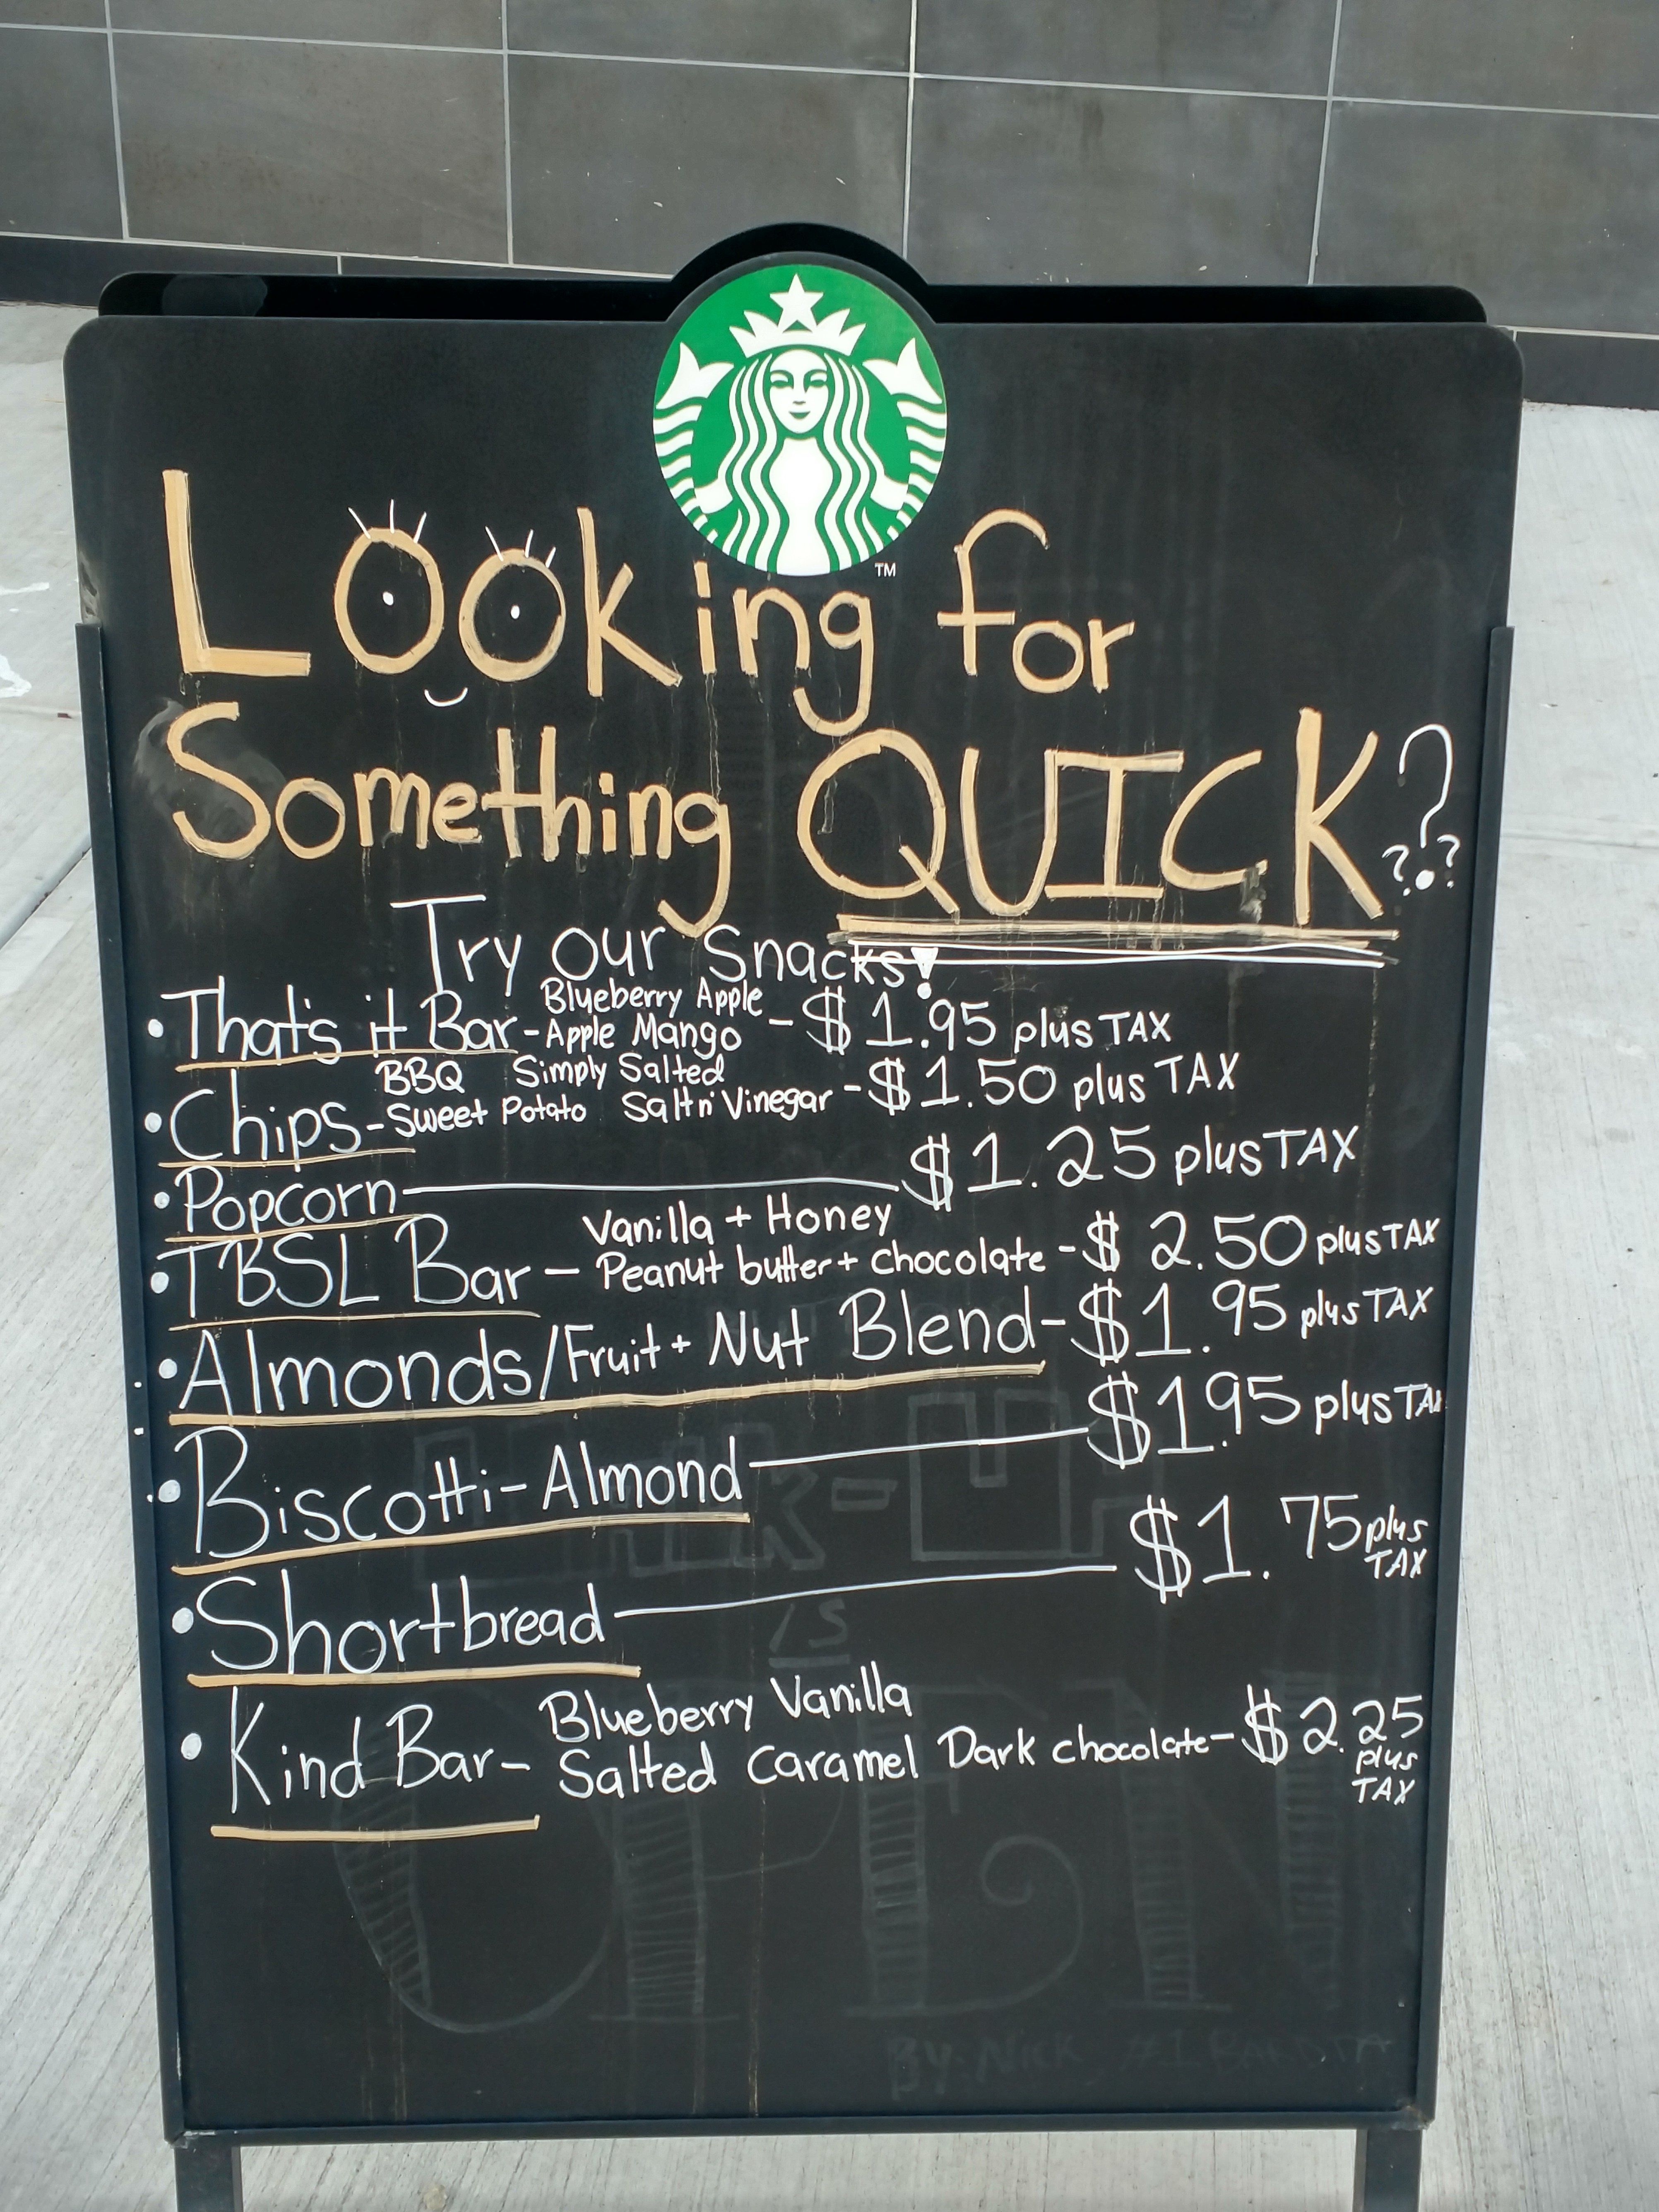 TM
Looking for
Something QUICK?
? ?
Try our Snacks!
Blueberry Apple
• That's it Bar - Apple Mango - $1.95 plus TAX
BBQ Simply Salted
• Chips - Sweet Potato Salt n' Vinegar - $1.50 plus TAX
• Popcorn — $1.25 plus TAX
Vanilla + Honey
• TBSL Bar — Peanut butter + chocolate - $2.50 plus TAX
• Almonds/Fruit + Nut Blend - $1.95 plus TAX
• Biscotti - Almond — $1.95 plus TAX
• Shortbread — $1.75 plus TAX
Blueberry Vanilla
• Kind Bar - Salted Caramel Dark chocolate - $2.25 plus TAX
IS
OPEN
BY: NICK #1 BARISTA